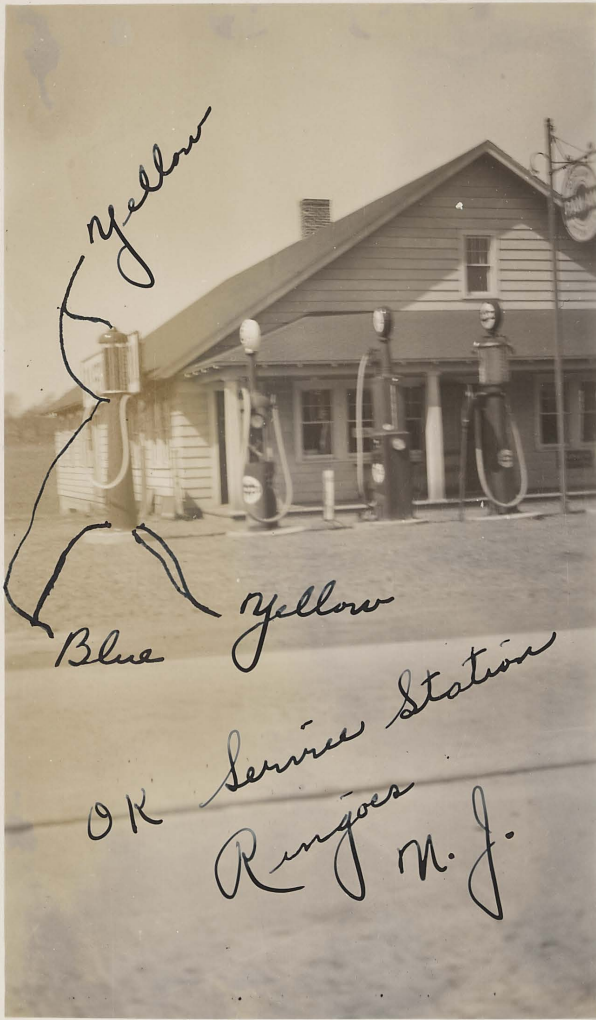 Yellow
Blue
Yellow
OK Service Station
Ringoes
N. J.